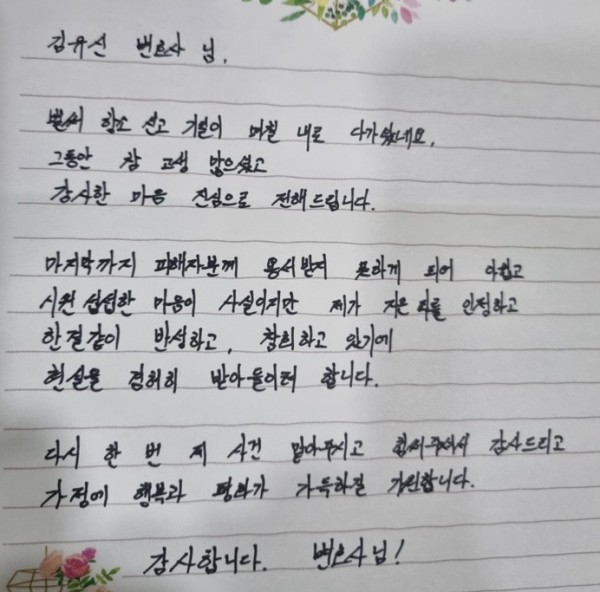 김유신 변호사 님,
벌써 항소 선고 기일이 며칠 내로 다가왔네요.
그동안 참 고생 많으셨고
감사한 마음 진심으로 전해드립니다.
마지막까지 피해자분께 용서받지 못하게 되어 아쉽고
시원 섭섭한 마음이 사실이지만 제가 지은 죄를 인정하고
한결같이 반성하고, 참회하고 있기에
현실을 겸허히 받아들이려 합니다.
다시 한 번 제 사건 맡아주시고 힘써주셔서 감사드리고
가정에 행복과 평화가 가득하길 기원합니다.
감사합니다. 변호사님!